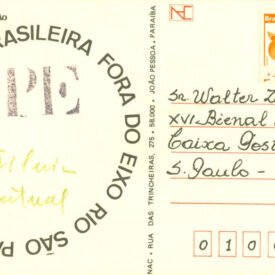 ão
BRASILEIRA FORA DO EIXO RIO SÃO PA
PE
NAC - RUA DAS TRINCHEIRAS, 275 - 58.000 - JOÃO PESSOA, PARAÍBA
NAC
Bra
Sr. Walter Z
XVI Bienal
Caixa Post
S. Paulo -
0 1 0 0